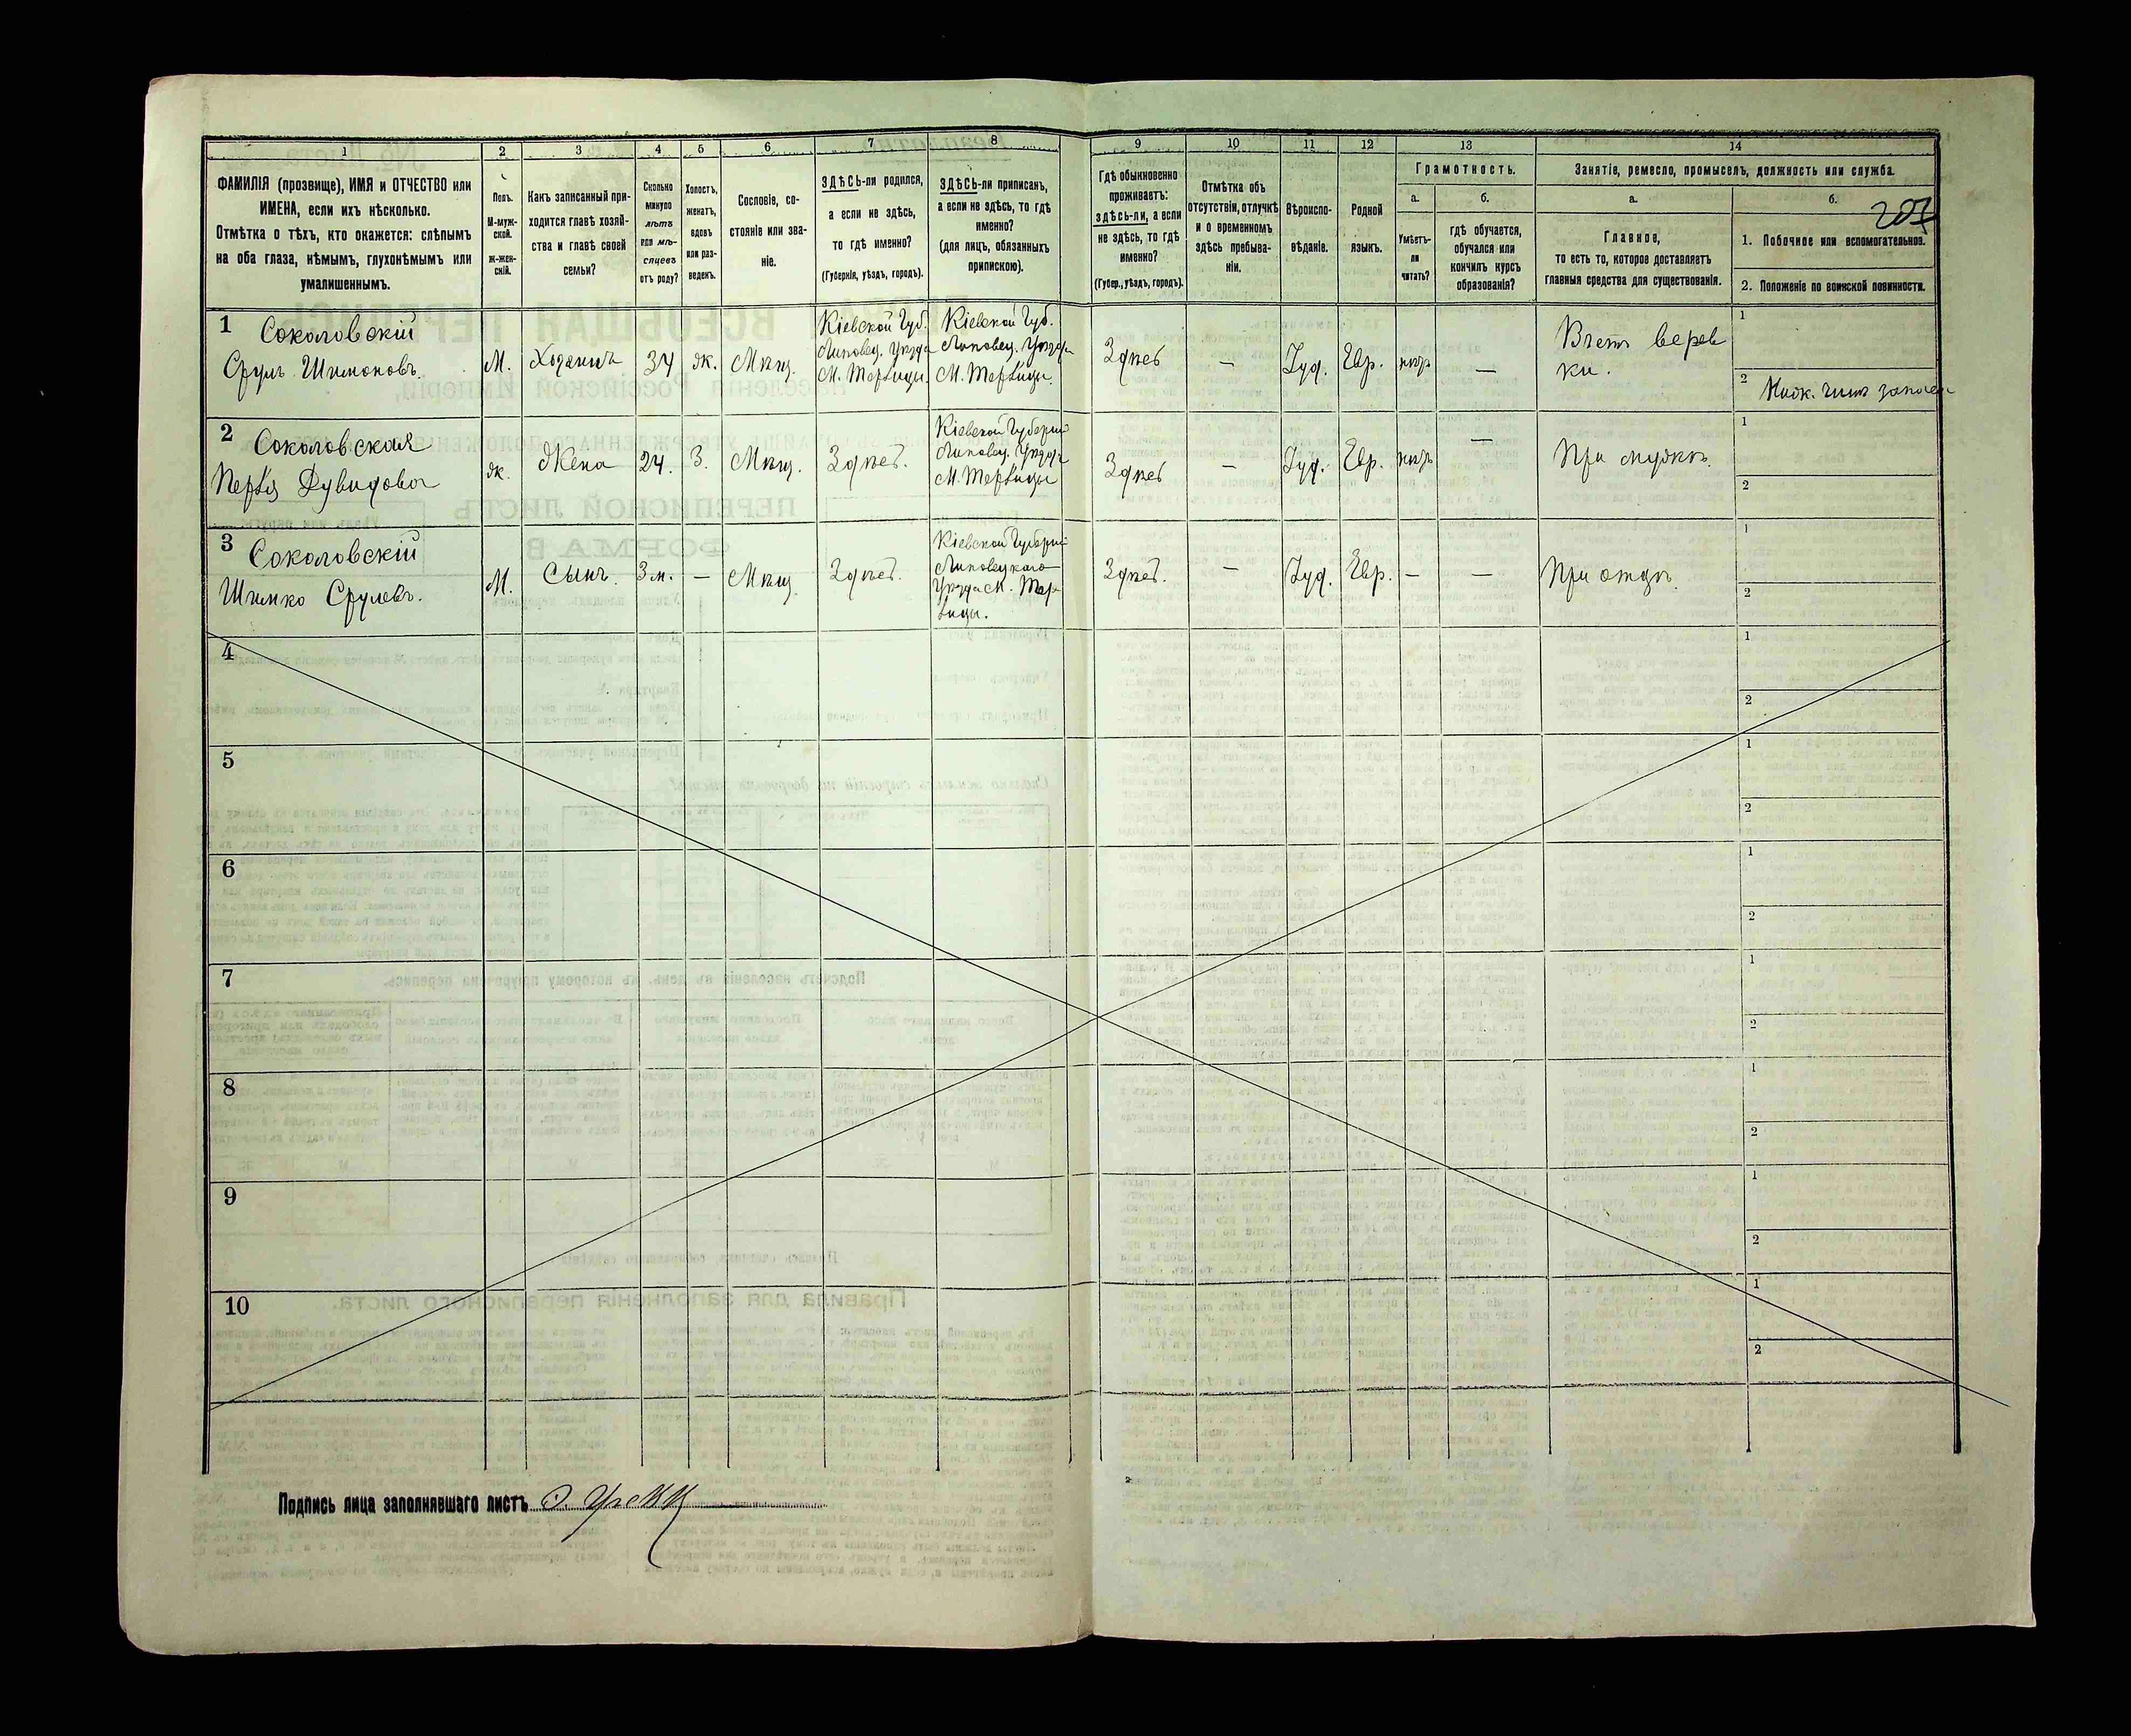 1
2
3
4
5
6
7
8
9
10
11
12
13
14
ФАМИЛІЯ (прозвище), ИМЯ и ОТЧЕСТВО или
ИМЕНА, если ихъ нѣсколько.
Отмѣтка о тѣхъ, кто окажется: слѣпымъ
на оба глаза, нѣмымъ, глухонѣмымъ или
умалишеннымъ.
Полъ.
М-муж-
ской.
Ж-жен-
скій.
Какъ записанный при-
ходится главѣ хозяй-
ства и главѣ своей
семьи?
Сколько
минуло
лѣтъ
или мѣ-
сяцевъ
отъ роду?
Холостъ,
женатъ,
вдовъ
или раз-
веденъ.
Сословіе, со-
стояніе или зва-
ніе.
ЗДѢСЬ-ли родился,
а если не здѣсь,
то гдѣ именно?
(Губернія, уѣздъ, городъ).
ЗДѢСЬ-ли приписанъ,
а если не здѣсь, то гдѣ
именно?
(для лицъ, обязанныхъ
припискою).
Гдѣ обыкновенно
проживаетъ:
здѣсь-ли, а если
не здѣсь, то гдѣ
именно?
(Губер., уѣздъ, городъ).
Отмѣтка объ
отсутствіи, отлучкѣ
и о временномъ
здѣсь пребыва-
ніи.
Вѣроиспо-
вѣданіе.
Родной
языкъ.
Грамотность.
а.
Умѣетъ-
ли
читать?
б.
гдѣ обучается,
обучался или
кончилъ курсъ
образованія?
Занятіе, ремесло, промыселъ, должность или служба.
а.
Главное,
то есть то, которое доставляетъ
главныя средства для существованія.
б.
207
1. Побочное или вспомогательное.
2. Положеніе по воинской повинности.
1
Соколовскій
Сруль Шимоновъ.
М.
Хозяинъ
34
ж.
Мѣщ.
Кіевской Губ.
Липовец. Уѣзда
М. Терлицы.
Кіевской Губ.
Липовец. Уѣзда
М. Терлицы.
Здѣсь
—
Іуд.
Евр.
нѣтъ
—
Вьетъ верев
ки.
1
2
2
Соколовская
Перля Дувидова
ж.
Жена
24.
З.
Мѣщ.
Здѣсь.
Кіевской Губерніи
Липовец. Уѣзда
М. Терлицы
Здѣсь
—
Іуд.
Евр.
нѣтъ
—
При мужѣ.
1
2
3
Соколовскій
Шимко Срулевъ.
М.
Сынъ.
3 м.
—
Мѣщ.
Здѣсь.
Кіевской Губерніи
Липовецкаго
Уѣзда М. Тер-
лицы.
Здѣсь.
—
Іуд.
Евр.
—
—
При отцѣ.
1
2
4
1
2
5
1
2
6
1
2
7
1
2
8
1
2
9
1
2
10
1
2
Подпись лица заполнявшаго листъ
2